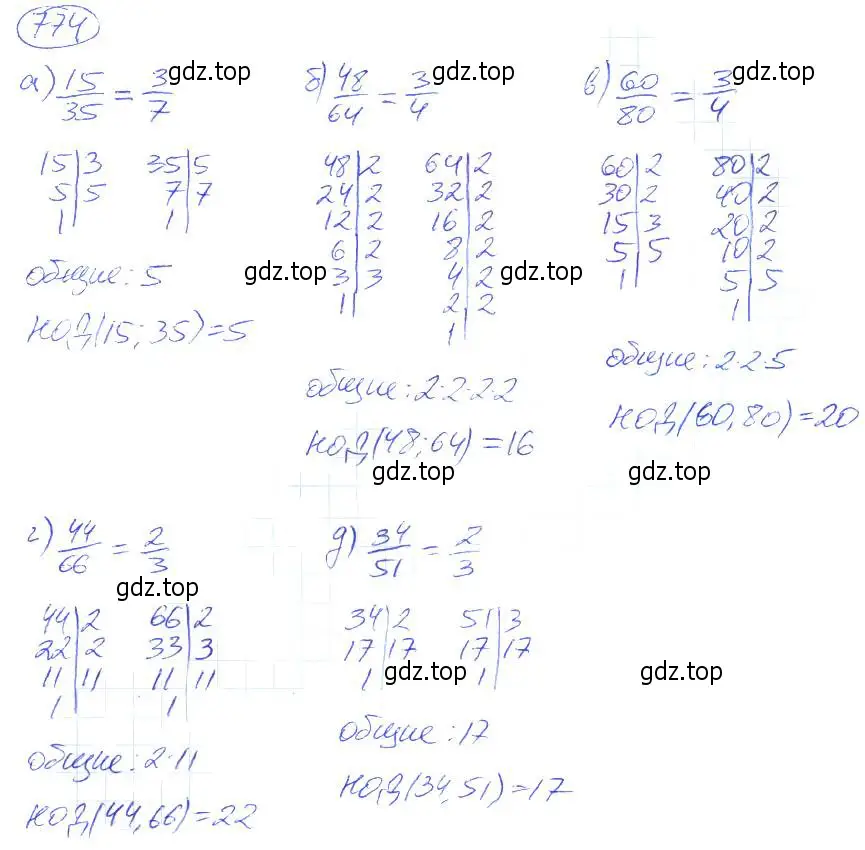 774
а) 15/35 = 3/7 gdz.top
15|3 35|5
5|5 7|7
1| 1|
общие: 5
НОД(15; 35) = 5
б) 48/64 = 3/4 gdz.top
48|2 64|2
24|2 32|2
12|2 16|2
6|2 8|2
3|3 4|2
1| 2|2
1|
gdz.top
общие: 2·2·2·2
НОД(48; 64) = 16
gdz.top
в) 60/80 = 3/4 gdz.top
60|2 80|2
30|2 40|2
15|3 20|2
5|5 10|2
1| 5|5
1|
gdz.top
общие: 2·2·5
НОД(60, 80) = 20
gdz.top
г) 44/66 = 2/3
gdz.top
44|2 66|2
22|2 33|3
11|11 11|11
1| 1|
общие: 2·11
НОД(44, 66) = 22
д) 34/51 = 2/3
34|2 51|3
17|17 17|17
1| 1|
gdz.top
gdz.top
общие: 17
НОД(34, 51) = 17